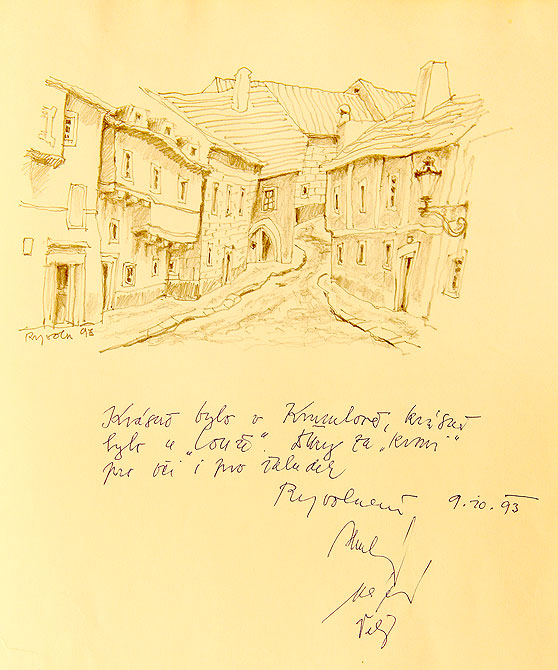 Ryvola 93
Krásně bylo v Krumlově, krásně
bylo u „Louže“. Díky za „krmi“
pro oči i pro žaludek
Ryvolovi 9.10.93